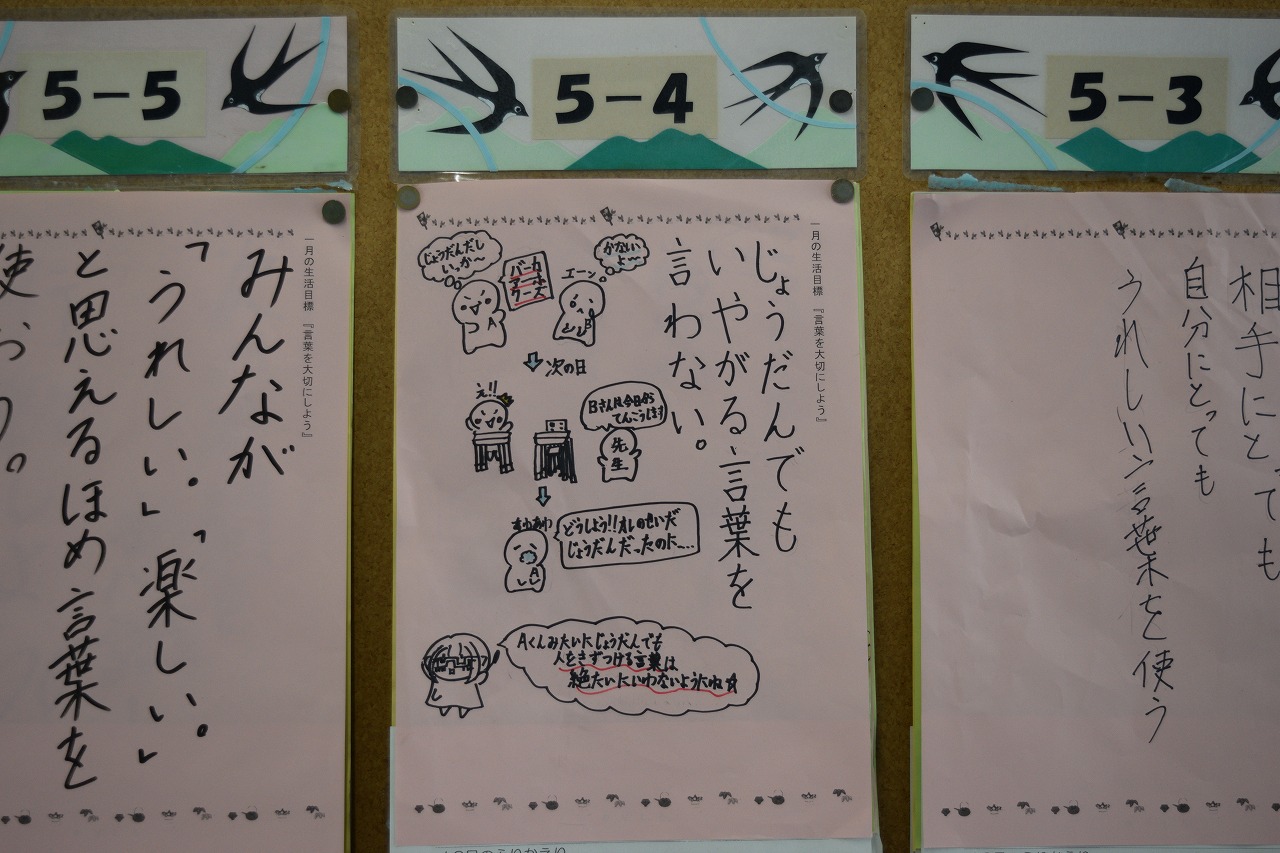 5-5
一月の生活目標 『言葉を大切にしよう』
みんなが
「うれしい。」「楽しい。」
と思えるほめ言葉を
使おう。
5-4
一月の生活目標 『言葉を大切にしよう』
じょうだんでも
いやがる言葉を
言わない。
じょうだんだし
いっか〜
バーカ
かなしい
よ〜
エーン
A
B
次の日
え!!
Bさんは今日から
てんこうします
先生
あわあわ
どうしよう!!オレのせいだ
じょうだんだったのに…
A
Aくんみたいにじょうだんでも
人をきずつける言葉は
絶たいにいわないようにね☆
5-3
相手にとっても
自分にとっても
うれしい言葉を使う